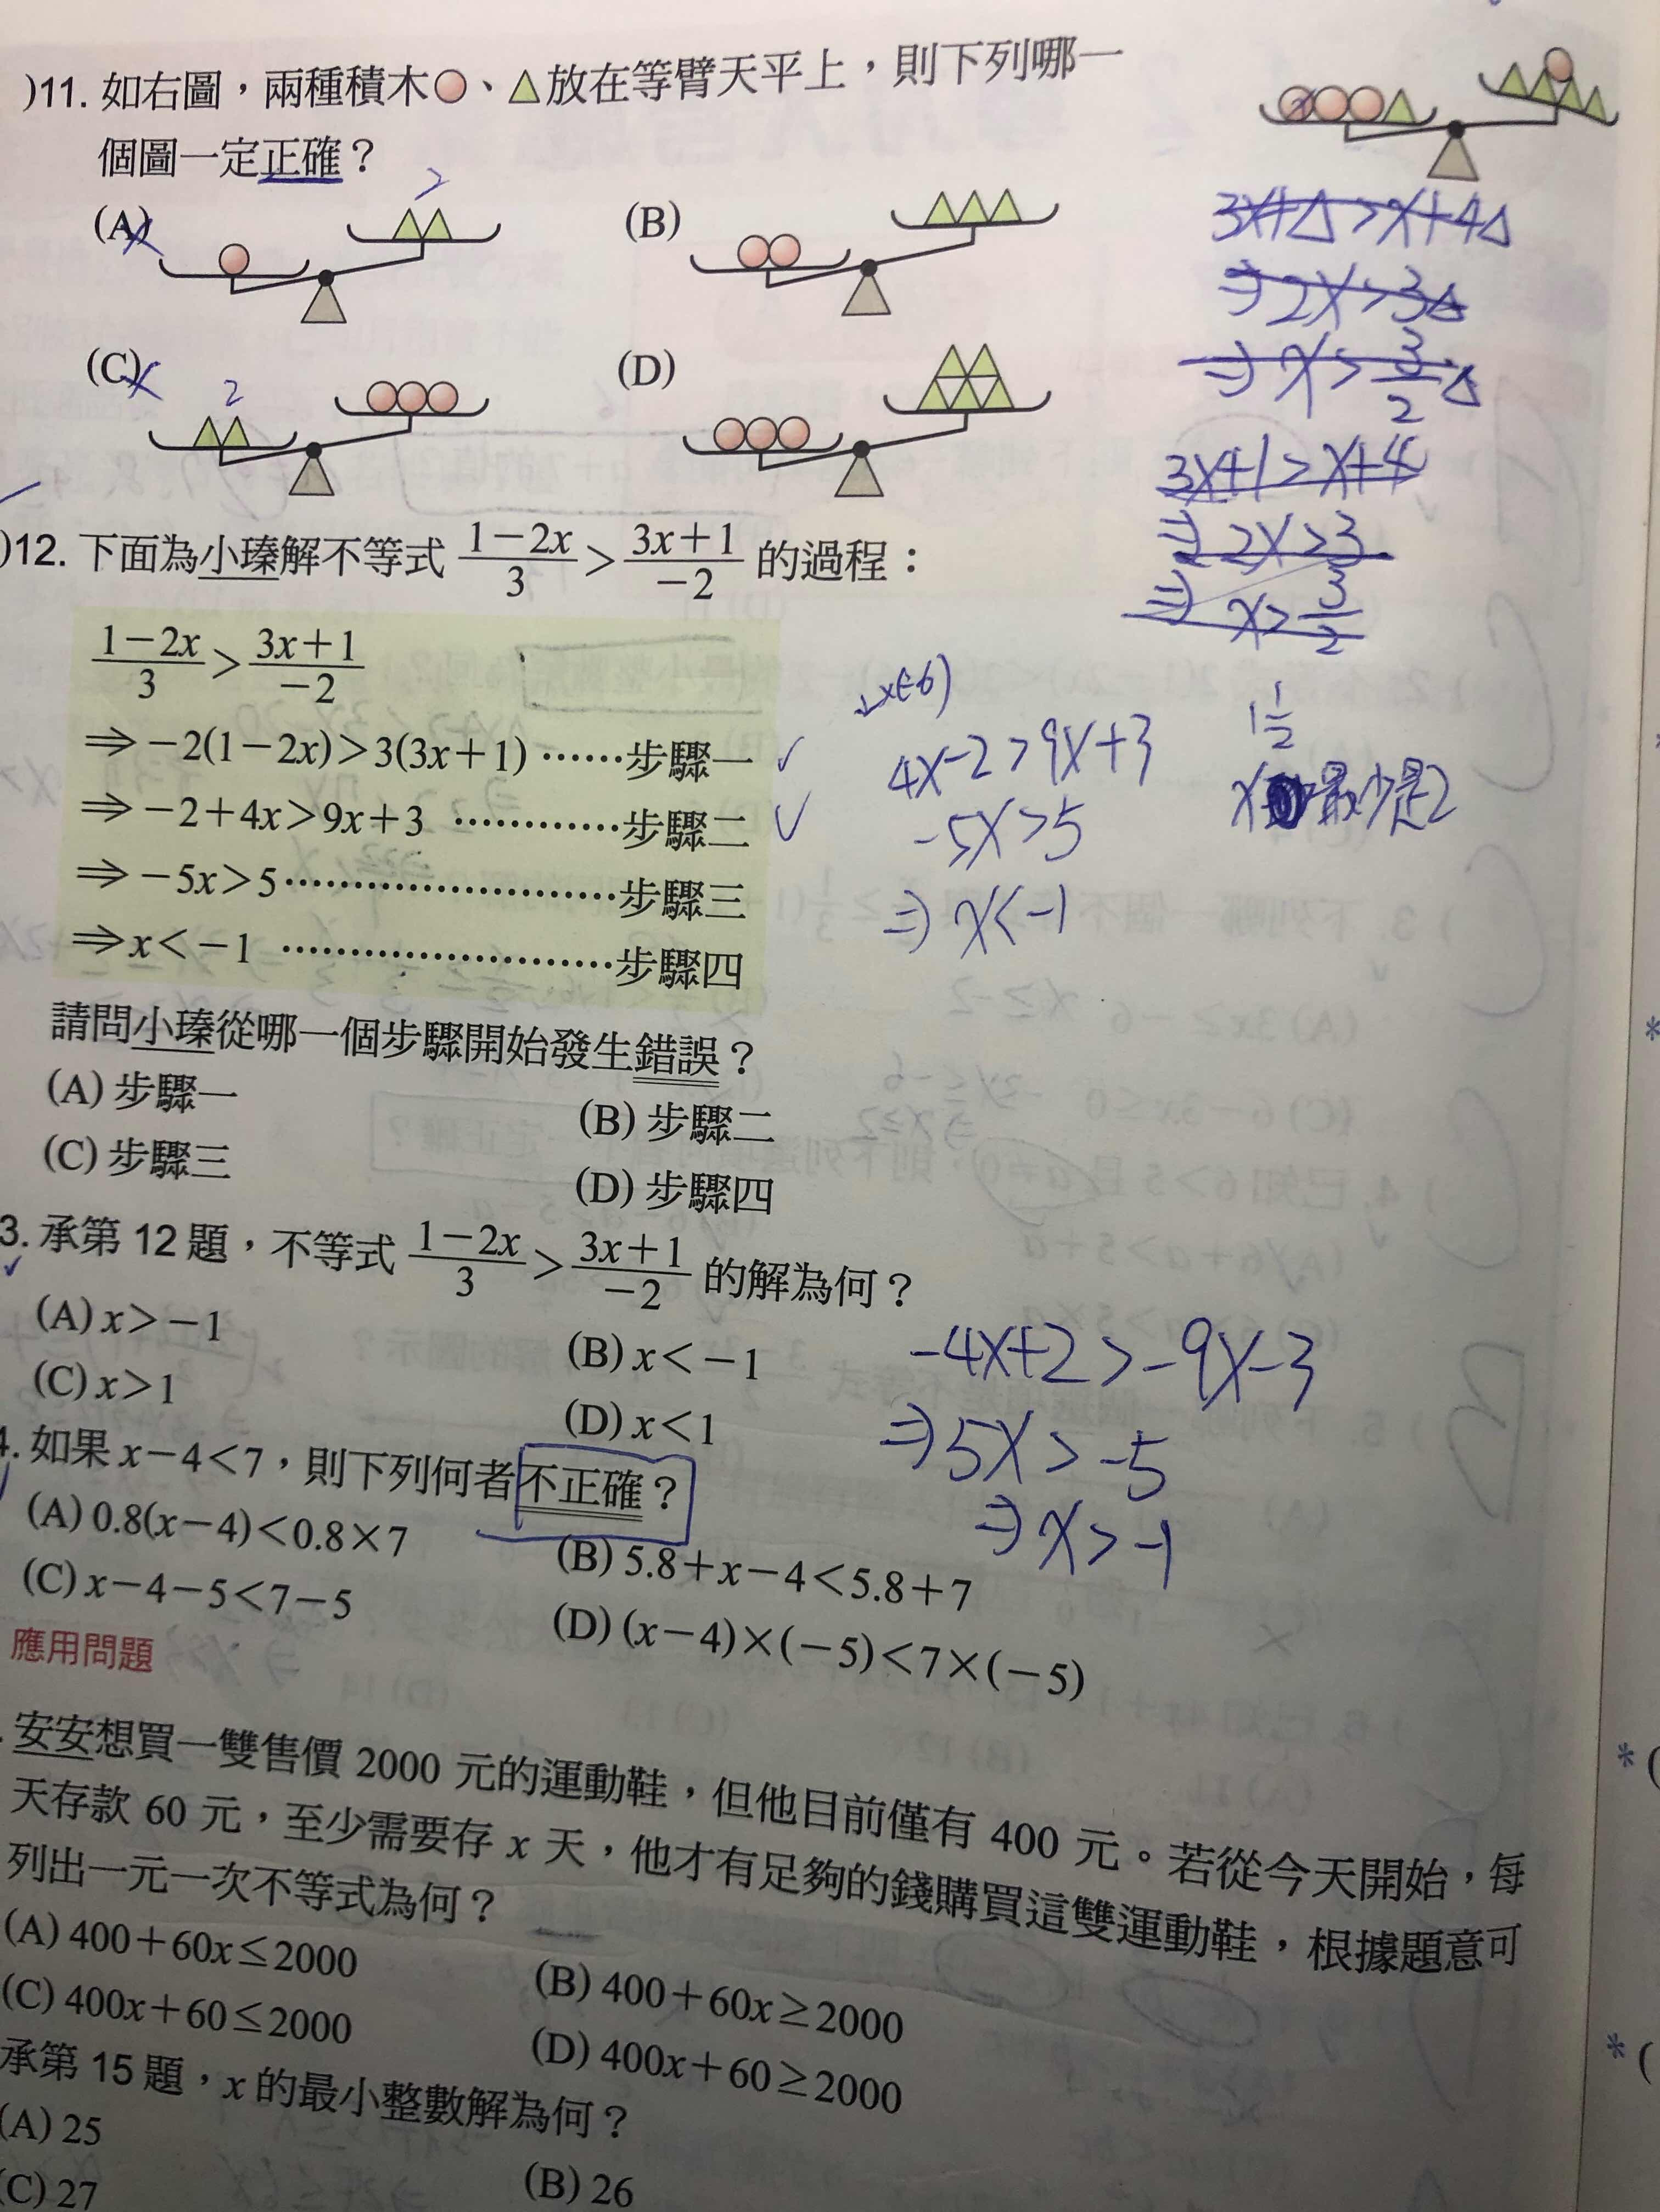 )11. 如右圖，兩種積木○、△放在等臂天平上，則下列哪一
個圖一定正確？
(A)
(B)
(C)
2
(D)
3x+△>x+4△
⇒2x>3△
⇒x>3/2△
3x+1>x+4
⇒2x>3
⇒x>3/2
1 1/2
x最少是2
)12. 下面為小瑧解不等式 (1−2x)/3 > (3x+1)/−2 的過程：
(1−2x)/3 > (3x+1)/−2
⇒−2(1−2x)>3(3x+1) ……步驟一 ✓
⇒−2+4x>9x+3 …………步驟二 ✓
⇒−5x>5……………………步驟三
⇒x<−1 ……………………步驟四
×(-6)
4x-2>9x+3
-5x>5
⇒x<-1
請問小瑧從哪一個步驟開始發生錯誤？
(A) 步驟一
(B) 步驟二
(C) 步驟三
(D) 步驟四
3. 承第 12 題，不等式 (1−2x)/3 > (3x+1)/−2 的解為何？
(A) x>−1
(B) x<−1
(C) x>1
(D) x<1
-4x+2>-9x-3
⇒5x>-5
⇒x>-1
4. 如果 x−4<7，則下列何者不正確？
(A) 0.8(x−4)<0.8×7
(B) 5.8+x−4<5.8+7
(C) x−4−5<7−5
(D) (x−4)×(−5)<7×(−5)
應用問題
安安想買一雙售價 2000 元的運動鞋，但他目前僅有 400 元。若從今天開始，每
天存款 60 元，至少需要存 x 天，他才有足夠的錢購買這雙運動鞋，根據題意可
列出一元一次不等式為何？
(A) 400+60x≤2000
(B) 400+60x≥2000
(C) 400x+60≤2000
(D) 400x+60≥2000
承第 15 題，x 的最小整數解為何？
(A) 25
(B) 26
(C) 27